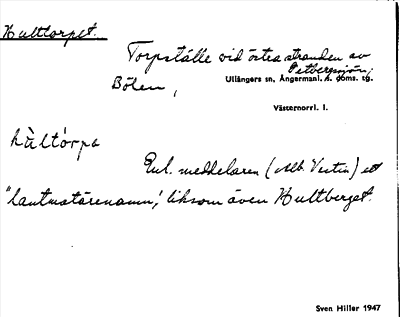 Hulttorpet.
Torpställe vid östra stranden av
Petbergssjön,
Bölen,
Ullångers sn, Ångermanl. n. doms. tg.
Västernorrl. l.
hùltòrpa
Enl. meddelaren (Alb. Vestin) ett
"lantmätarenamn", liksom även Hultberget.
Sven Hiller 1947